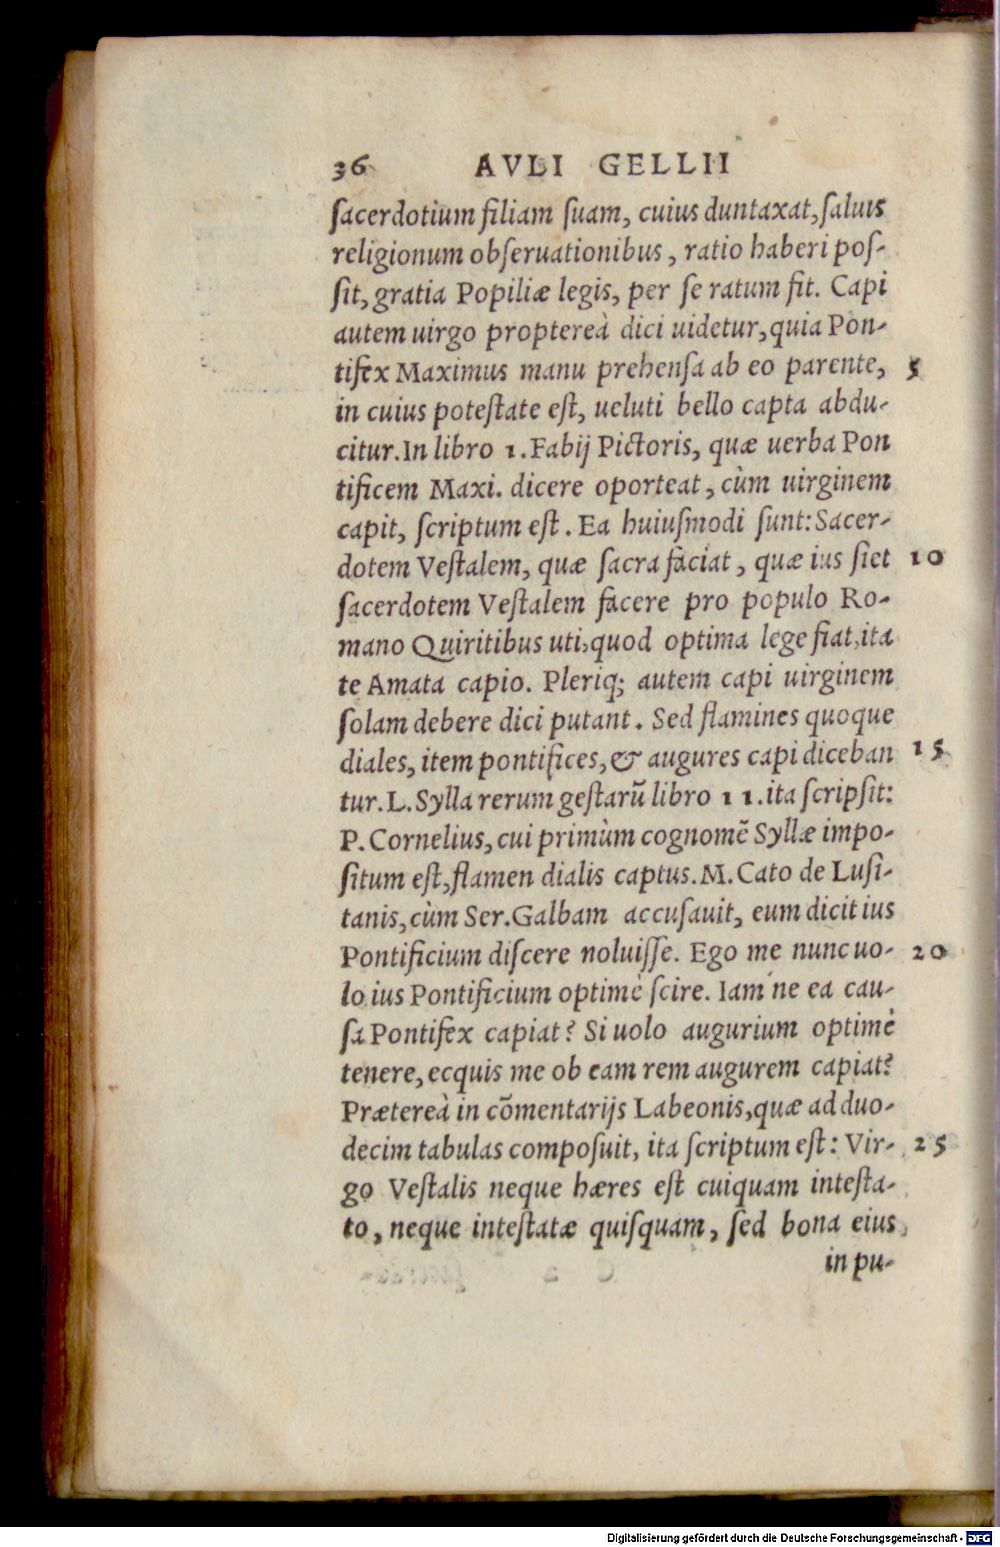 36 AVLI GELLII
ſacerdotium filiam ſuam, cuius duntaxat, ſaluis
religionum obſeruationibus, ratio haberi poſ-
ſit, gratia Popiliæ legis, per ſe ratum fit. Capi
autem uirgo proptereà dici uidetur, quia Pon-
tifex Maximus manu prehenſa ab eo parente, 5
in cuius poteſtate eſt, ueluti bello capta abdu-
citur. In libro 1. Fabij Pictoris, quæ uerba Pon
tificem Maxi. dicere oporteat, cùm uirginem
capit, ſcriptum eſt. Ea huiuſmodi ſunt: Sacer-
dotem Veſtalem, quæ ſacra faciat, quæ ius ſiet 10
ſacerdotem Veſtalem facere pro populo Ro-
mano Quiritibus uti, quod optima lege fiat, ita
te Amata capio. Pleriq; autem capi uirginem
ſolam debere dici putant. Sed flamines quoque
diales, item pontifices, & augures capi diceban 15
tur. L. Sylla rerum geſtarũ libro 11. ita ſcripſit:
P. Cornelius, cui primùm cognomẽ Syllæ impo-
ſitum eſt, flamen dialis captus. M. Cato de Luſi-
tanis, cùm Ser. Galbam accuſauit, eum dicit ius
Pontificium diſcere noluiſſe. Ego me nunc uo- 20
lo ius Pontificium optimè ſcire. Iam ́ne ea cau-
ſa Pontifex capiat? Si uolo augurium optimè
tenere, ecquis me ob eam rem augurem capiat?
Prætereà in cõmentarijs Labeonis, quæ ad duo-
decim tabulas compoſuit, ita ſcriptum eſt: Vir- 25
go Veſtalis neque hæres eſt cuiquam inteſta-
to, neque inteſtatæ quiſquam, ſed bona eius
in pu-
Digitalisierung gefördert durch die Deutsche Forschungsgemeinschaft - DFG